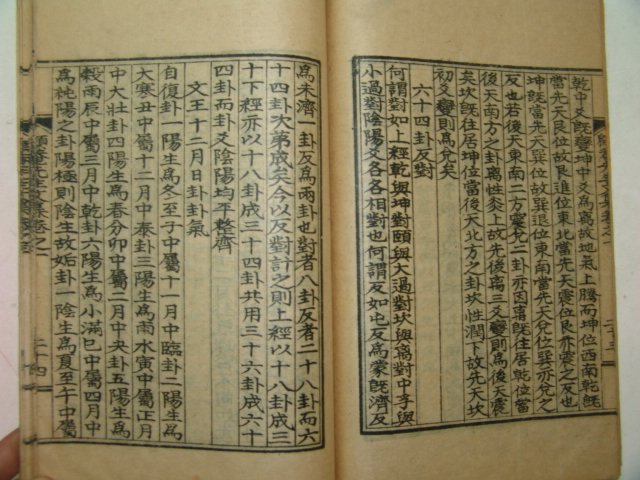 乾中爻旣變坤中爻爲离故地氣上騰而坤位西南乾旣
當先天艮位故艮進位東北當先天震位艮亦震之反也
坤旣當先天巽位故巽退位東南當先天兌位巽亦兌之
反也若後天東南二方震兌二卦亦因旣往居乾位當
後天南方之卦離性炎上故先後離三爻變則爲後天震
矣坎旣往居坤位當後天北方之卦坎性潤下故先天坎
初爻變則爲兌矣
六十四卦反對
何謂對如上經乾與坤對頤與大過對坎與离對中孚與
小過對陰陽爻各各相對也何謂反如屯反爲蒙旣濟反
爲未濟一卦反爲兩卦也對者八卦反者二十八卦而六
十四卦次第成矣今以反對計之則上經以十八卦成三
十下經亦以十八卦成三十四卦共用三十六卦成六十
四卦而卦爻陰陽均平整齊
文王十二月日卦卦氣
自復卦一陽生爲冬至子中屬十一月中臨卦二陽生爲
大寒丑中屬十二月中泰卦三陽生爲雨水寅中屬正月
中大壯卦四陽生爲春分卯中屬二月中夬卦五陽生爲
穀雨辰中屬三月中乾卦六陽生爲小滿巳中屬四月中
爲純陽之卦陽極則陰生故姤卦一陰生爲夏至午中屬
先生文集卷之一
二十四